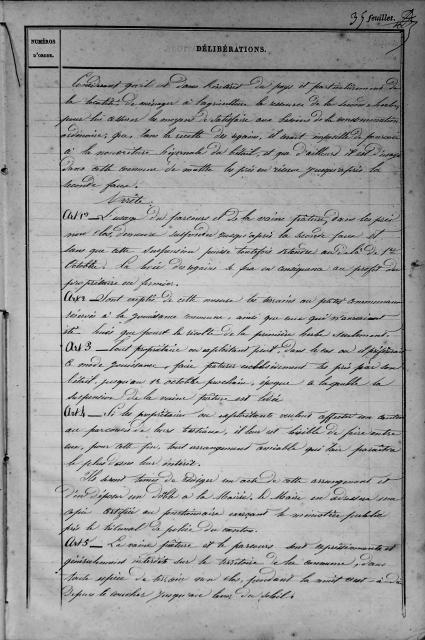 35 feuillet.
NUMÉROS
D'ORDRE.
DÉLIBÉRATIONS.
Considérant qu'il est dans l'intérêt du pays et particulièrement de
la de ménager à l'agriculture la ressource de la seconde herbe,
pour lui assurer les moyens de satisfaire aux besoins de la consommation
ordinaire; que, sans la récolte des regains, il serait impossible de pourvoir
à la nourriture hivernale du bétail, et que d'ailleurs il est d'usage
dans cette commune de mettre les prés en réserve jusqu'après la
seconde faux.
Arrête:
Art 1er L'usage du parcours et de la vaine pâture, dans les prés
non clos, demeure suspendu jusqu'après la seconde faux et
sans que cette suspension puisse toutefois s'étendre au delà du 1er
Octobre. La levée des regains se fera en conséquence au profit du
propriétaire ou fermier.
Art 2 Sont exceptés de cette mesure les terrains ou patis communaux
réservés à la jouissance commune, ainsi que ceux qui n'auraient
été que pour la récolte de la première herbe seulement.
Art 3 Tout propriétaire ou exploitant peut, dans le cas où il préférerait
ce mode jouissance, faire paturer isolément les prés par son
bétail, jusqu'au 1er octobre prochain, époque à laquelle la
suspension de la vaine pâture est levée
Art 4 Si les propriétaires ou exploitants veulent affecter un canton
au parcours de leurs bestiaux, il leur est loisible de faire entre
eux, pour cette fin, tout arrangement amiable qui leur paraîtra
le plus dans leur intérêt.
Ils sont tenus de rédiger un acte de cette arrangement et
d'en déposer un double à la Mairie. Le Maire en adressera une
copie certifiée au fonctionnaire exerçant le ministère public
près le tribunal de police du canton.
Art 5 La vaine pâture et le parcours sont expressément et
généralement interdits sur le territoire de la commune, dans
toute espèce de terrain non clos, pendant la nuit c'est-à-dire
depuis le coucher jusqu'au lever du soleil.